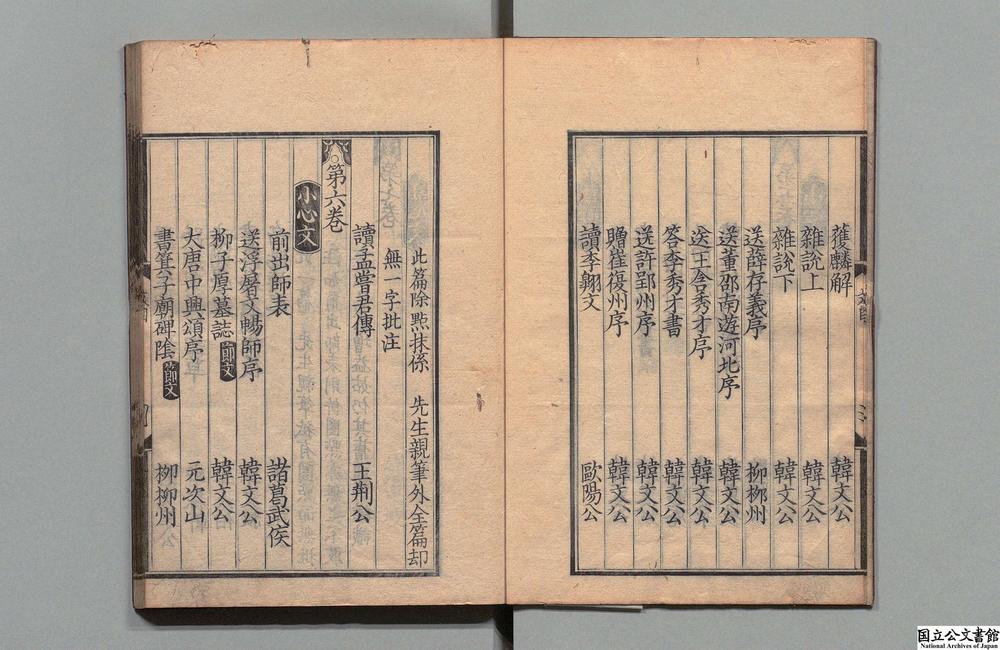 獲麟解 韓文公
雜說上 韓文公
雜說下 韓文公
送薛存義序 柳柳州
送董邵南遊河北序 韓文公
送王含秀才序 韓文公
答李秀才書 韓文公
送許郢州序 韓文公
贈崔復州序 韓文公
讀李翺文 歐陽公
此篇除點抹係 先生親筆外全篇却
無一字批注
讀孟嘗君傳 王荆公
第六卷
小心文
前出師表 諸葛武侯
送浮屠文暢師序 韓文公
柳子厚墓誌 節文 韓文公
大唐中興頌序 元次山
書箕子廟碑陰 節文 柳柳州
国立公文書館
National Archives of Japan